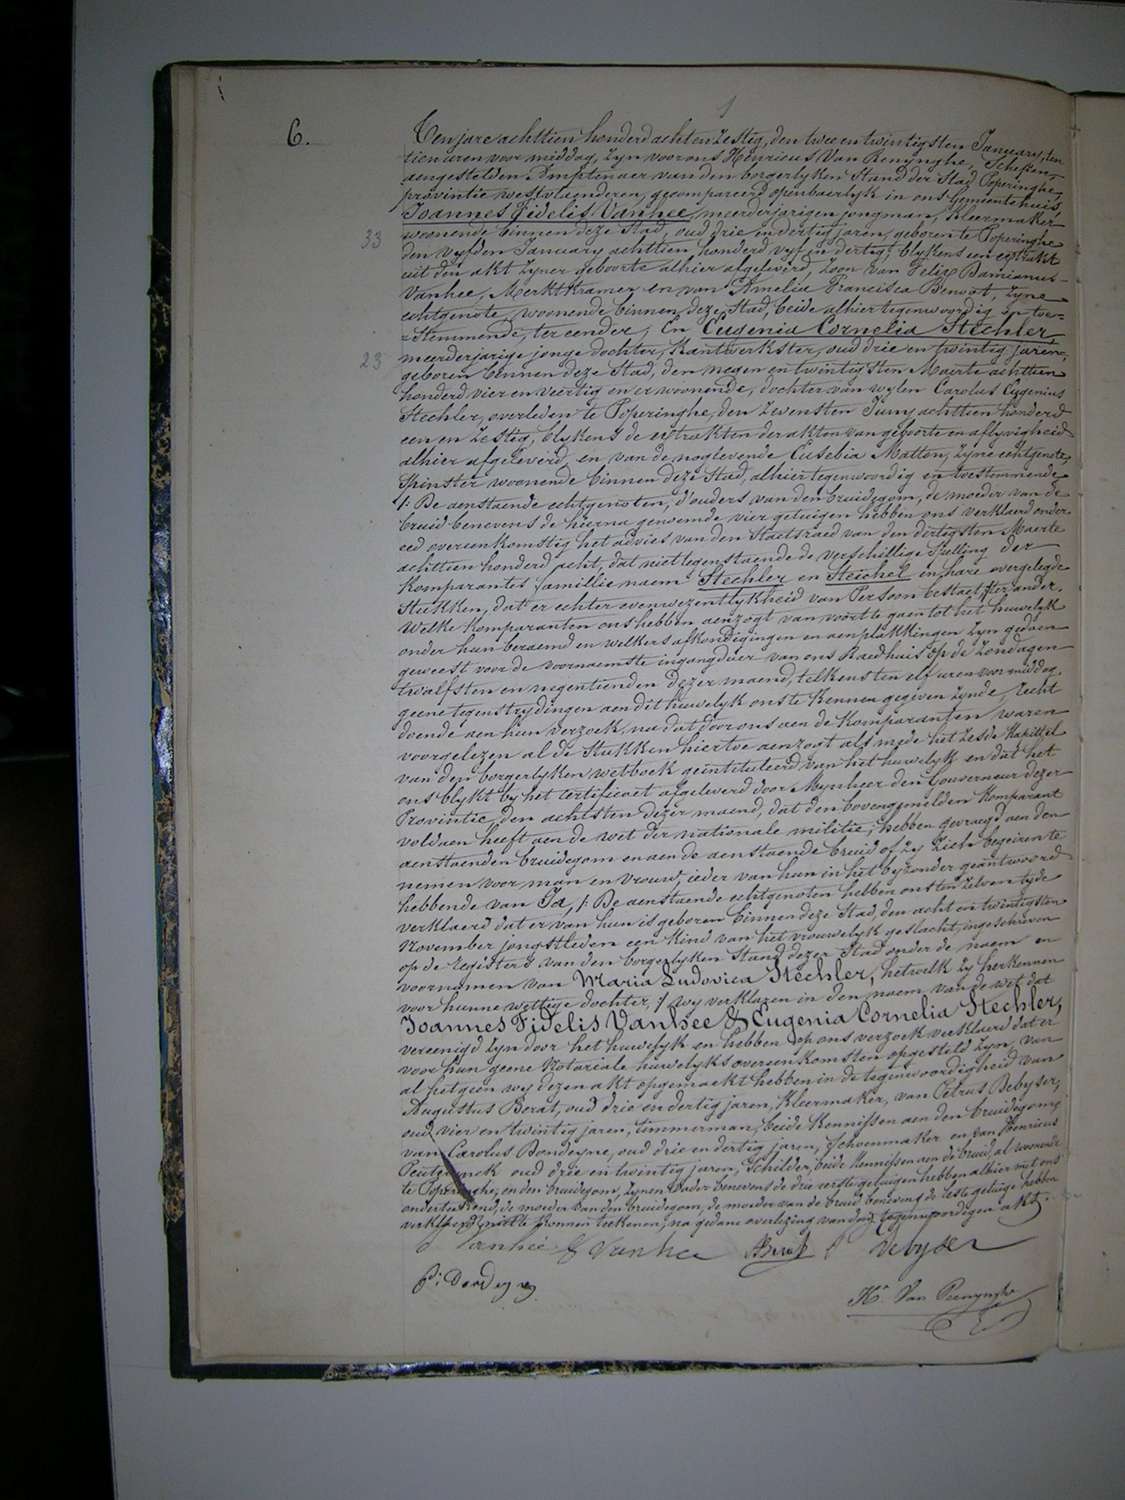 6.
Ten jare achttien honderd acht en zestig, den twee en twintigsten January, ten
tien uren voor middag, zyn voor ons Henricus Van Renynghe, Schepen,
aengestelden Amptenaer van den borgerlyken Stand der Stad Poperinghe,
provintie westvlaenderen, gecompareerd openbaerlyk in ons Gemeentehuis,
Joannes Fidelis Vanhee, meerderjarigen jongman, kleermaker
33
woonende binnen deze Stad, oud drie en dertig jaren, geboren te Poperinghe
den vyfden January achttien honderd vyf en dertig, blykens een extrakt
uit den akt zyner geboorte alhier afgeleverd, zoon van Felix Damianus
Vanhee, Merktkramer en van Amelia Francisca Benoot, zyne
echtgenote, woonende binnen deze Stad, beide alhier tegenwoordig en toe=
=stemmende, ter eender, En Eugenia Cornelia Stechler,
23
meerderjarige jonge dochter, kantwerkster, oud drie en twintig jaren,
geboren binnen deze Stad, den negen en twintigsten Maerte achttien
honderd vier en veertig en er woonende, dochter van wylen Carolus Eugenius
Stechler, overleden te Poperinghe, den zevensten Juny achttien honderd
een en zestig, blykens de extrakten der akten van geboorte en aflyvigheid
alhier afgeleverd, en van de noglevende Eusebia Matten, zyne echtgenote,
Spinster woonende binnen deze Stad, alhier tegenwoordig en toestemmende
/: De aenstaende echtgenoten, d'ouders van den bruidegom, de moeder van de
bruid benevens de hierna genoemde vier getuigen hebben ons verklaerd onder
eed overeenkomstig het advies van den Staetsraed van den dertigsten Maerte
achttien honderd acht, dat niettegenstaende de verschillige Spelling der
Komparantes famillie naem Stechler en Steichel in hare overgelegde
Stukken, dat er echter evenwezentlykheid van Persoon bestaet, ter ander.
Welke Komparanten ons hebben aenzogt van voort te gaen tot het huwelyk
onder hun beraemd en welkers afkondigingen en aenplakkingen zyn gedaen
geweest voor de voornaemste ingangdeur van ons Raedhuis op de zondagen
twalfsten en negentienden dezer maend, telkens ten elf uren voormiddag,
geene tegenstrydingen aen dit huwelyk ons te kennen gegeven zynde, recht
doende aen hun verzoek, na dat door ons aen de Komparanten waren
voorgelezen al de Stukken hiertoe aenzogt als mede het zesde Kapittel
van den borgerlyken wetboek geïntituleerd van het huwelyk en dat het
ons blykt by het certificaet afgeleverd door Mynheer den Gouverneur dezer
Provintie, den achtsten dezer maend, dat den bovengemelden Komparant
voldaen heeft aen de wet der nationale militie, hebben gevraegd aen den
aenstaenden bruidegom en aen de aenstaende bruid of zy zich begeiren te
nemen voor man en vrouw, ieder van hun in het byzonder geantwoord
hebbende van Ja, /: De aenstaende echtgenoten hebben ons ten zelven tyde
verklaerd dat er van hun is geboren binnen deze Stad, den acht en twintigsten
November jongstleden een kind van het vrouwelyk geslacht, ingeschreven
op de registers van den borgerlyken Stand dezer Stad onder de naem en
voornamen van Maria Ludovica Stechler, hetwelk zy herkennen
voor hunne wettige dochter, :/ wy verklaren in den naem van de wet dat
Joannes Fidelis Vanhee & Eugenia Cornelia Stechler,
vereenigd zyn door het huwelyk en hebben op ons verzoek verklaerd dat er
voor hun geene Notariale huwelyks overeenkomsten opgesteld zyn, van
al hetgeen wy dezen akt opgemaekt hebben in de tegenwoordigheid van
Augustus Berat, oud drie en dertig jaren, Kleermaker, van Petrus Debyser,
oud vier en twintig jaren, timmerman, beide Kennissen aen den bruidegom,
van Carolus Dondeyne, oud drie en dertig jaren, Schoenmaker en van Henricus
oud drie en twintig jaren, Schilder, beide Kennissen aen de bruid, al woonende
te Poperinghe, en den bruidegom, zynen vader benevens de drie eerste getuigen hebben alhier met ons
onderteekend, de moeder van den bruidegom, de moeder van de bruid benevens de leste getuige hebben
verklaerd niet te konnen teekenen, na gedane overlezing van dezen tegenwoordigen akt.
Vanhée F Vanhee Berat Debyser
Dondeyne
He. Van Renynghe